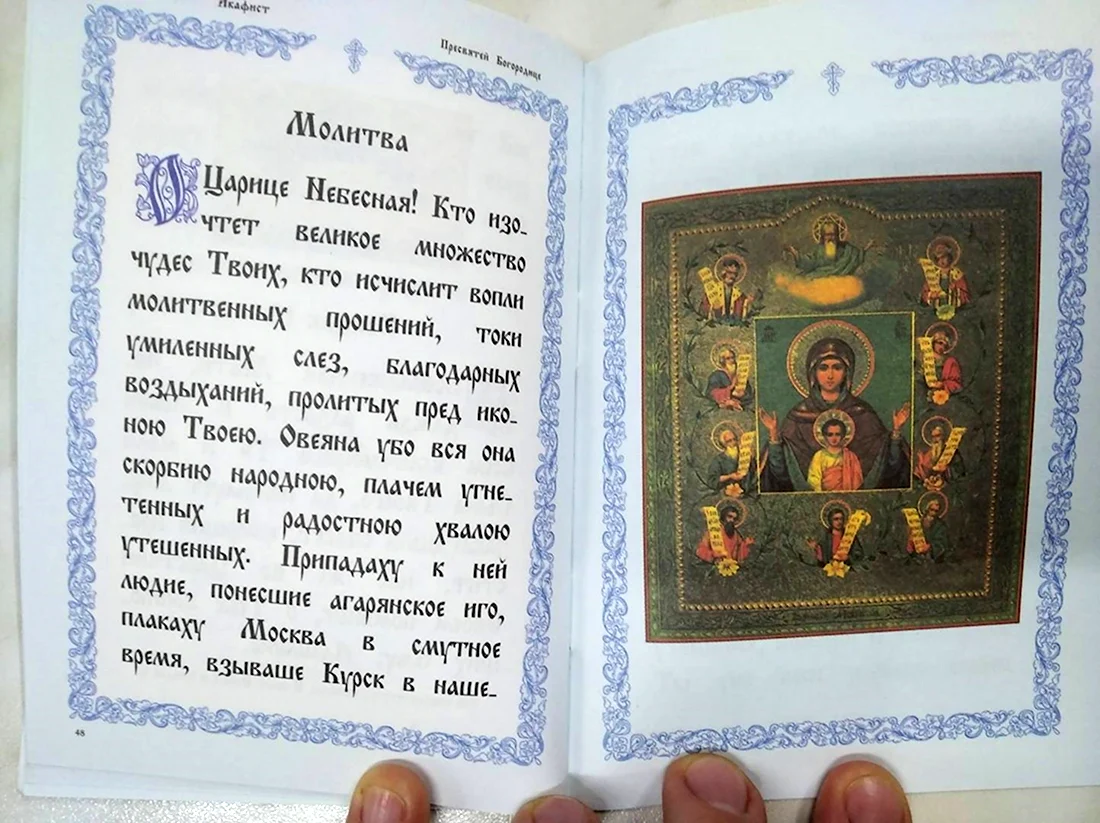 Акафист
Пресвятей Богородице
Молитва
О Царице Небесная! Кто изо-
чтет великое множество
чудес Твоих, кто исчислит вопли
молитвенных прошений, токи
умиленных слез, благодарных
воздыханий, пролитых пред ико-
ною Твоею. Овеяна убо вся она
скорбию народною, плачем угне-
тенных и радостною хвалою
утешенных. Припадаху к ней
людие, понесшие агарянское иго,
плакаху Москва в смутное
время, взываше Курск в наше-
48